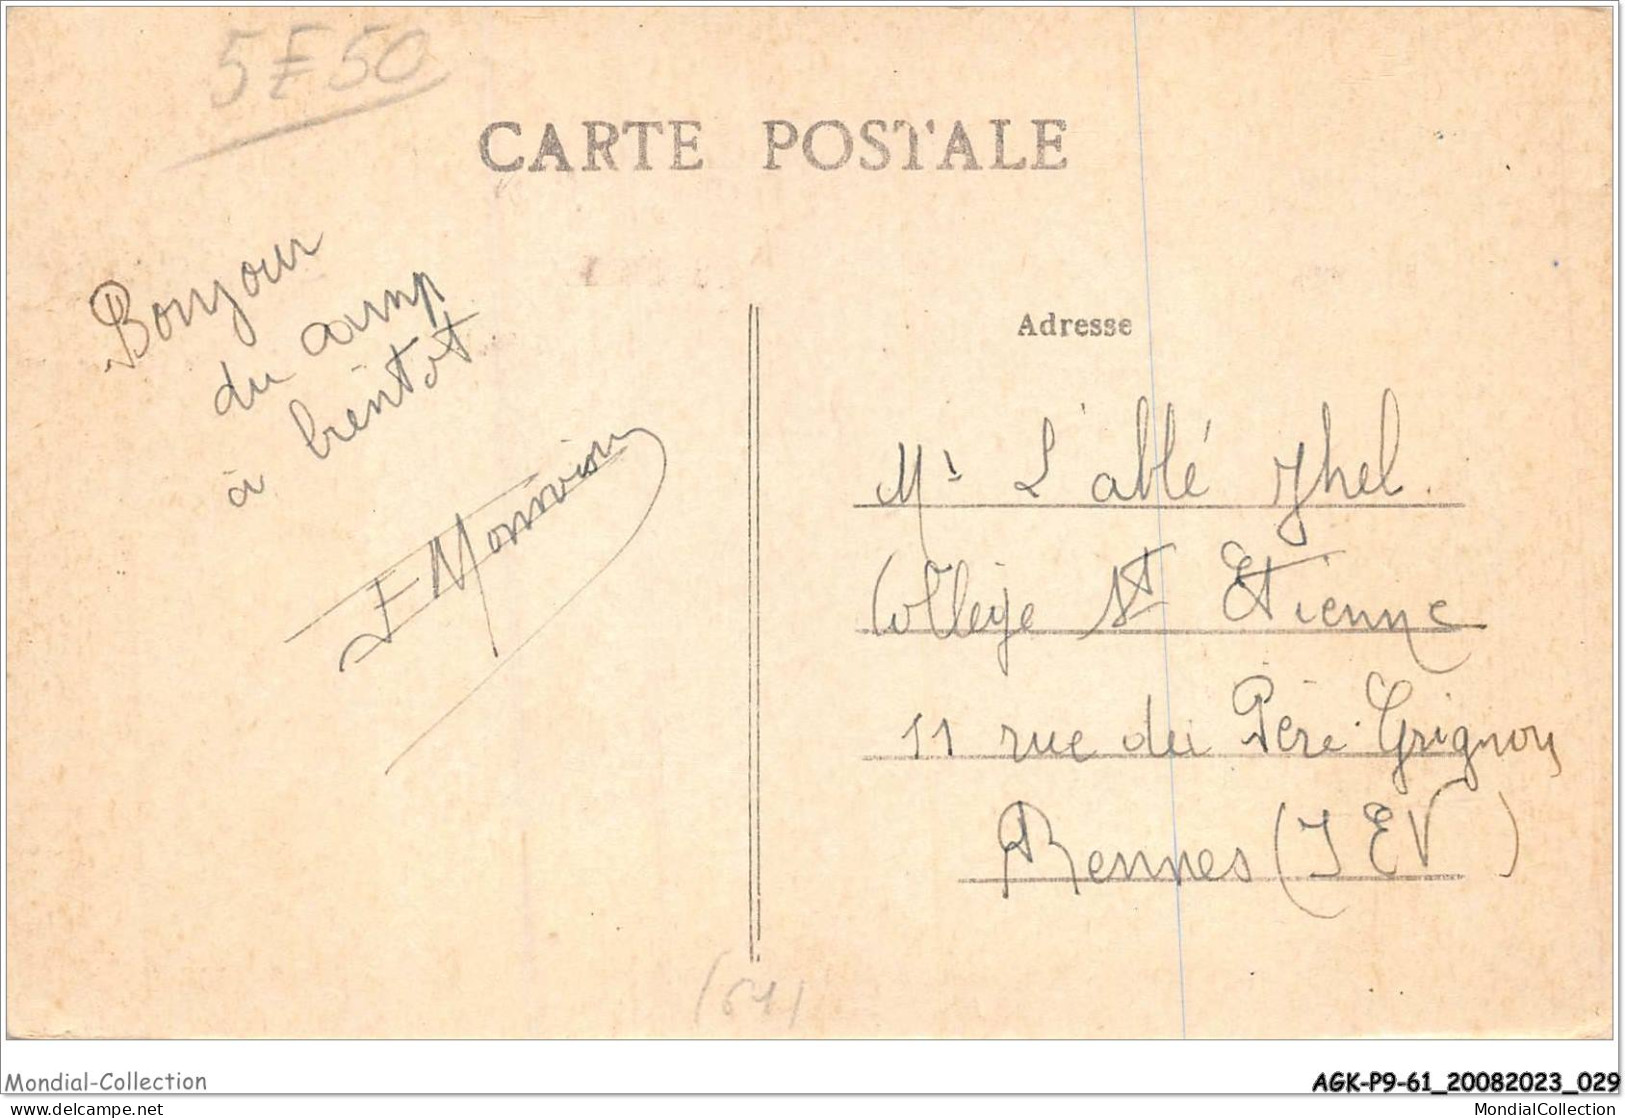 5F50
CARTE POSTALE
Bonjour
du camp
à bientôt
Adresse
Mr L'abbé
Collège St Etienne
11 rue du Père Grignon
Rennes (I E V)
(64)
Mondial-Collection
AGK-P9-61_20082023_029
delcampe.net
MondialCollection